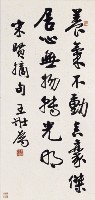 養氣不動真豪傑
居心無物轉光明
宋賢摘句 王壯為